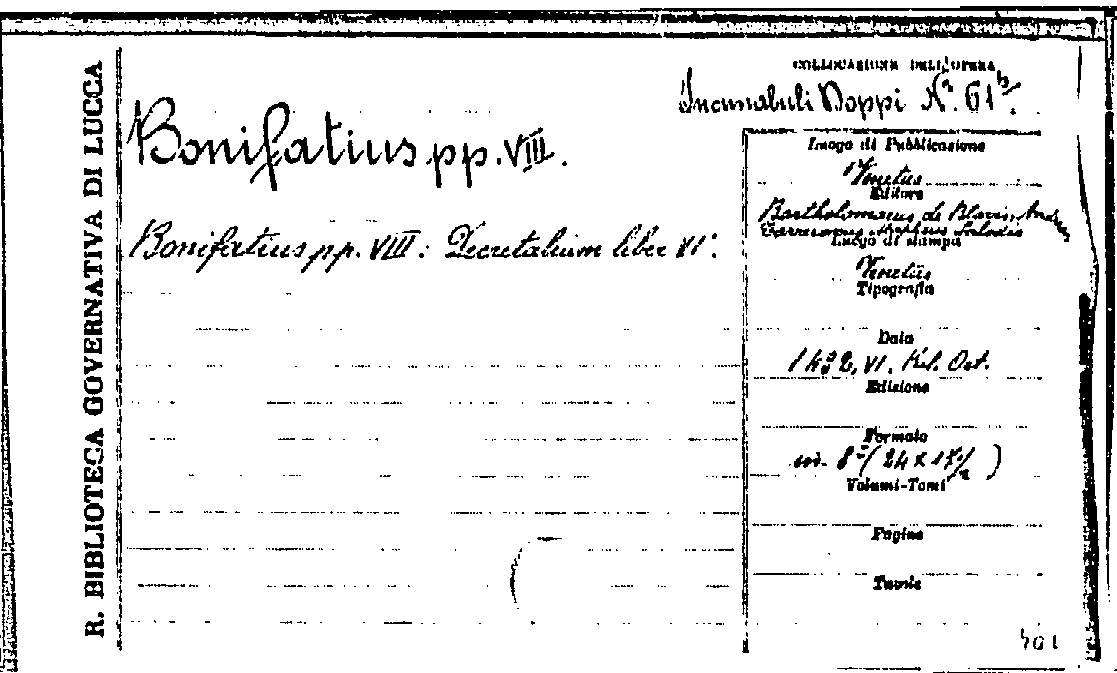 R. BIBLIOTECA GOVERNATIVA DI LUCCA
COLLOCAZIONE DELL'OPERA
Incunabuli Doppi N. 61
Bonifatius pp. VIII.
Bonifatius pp. VIII: Decretalium liber VI:
Luogo di Pubblicazione
Venetiis
Editore
Bartholomaeus de Blavis, Andreas
Luogo di stampa
Venetiis
Tipografia
Data
VI. Kal. Oct.
Edizione
Formato
in 8° (24 x 17 1/2)
Volumi-Tomi
Pagine
Tavole